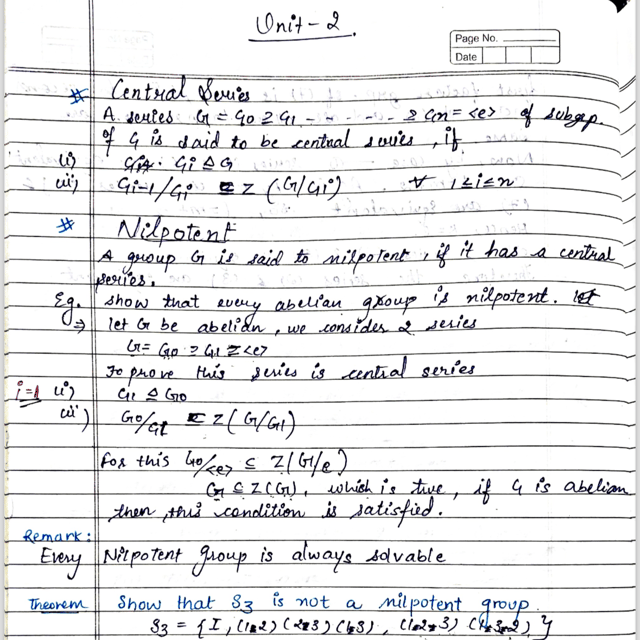 Unit - 2.
Page No.
Date
# Central Series
A series G = G0 ⊇ G1 - - - - - - ⊇ Gn = <e> of subgrp.
of G is said to be central series, if
(i) Gi ⊴ G
(ii) Gi-1/Gi ⊆ Z (G/Gi) ∀ 1≤i≤n
# Nilpotent
A group G is said to nilpotent, if it has a central
series.
Eg. show that every abelian group is nilpotent.
⇒ let G be abelian, we considers 2 series
G = G0 ⊇ G1 = <e>
To prove this series is central series
i=1 (i) G1 ⊴ G0
(ii) G0/G1 ⊆ Z(G/G1)
for this G0/<e> ⊆ Z(G/e)
G ⊆ Z(G), which is true, if G is abelian
then, this condition is satisfied.
Remark:
Every Nilpotent group is always solvable
Theorem Show that S3 is not a nilpotent group.
S3 = { I, (1 2) (2 3) (1 3), (1 2 3) (1 3 2) }